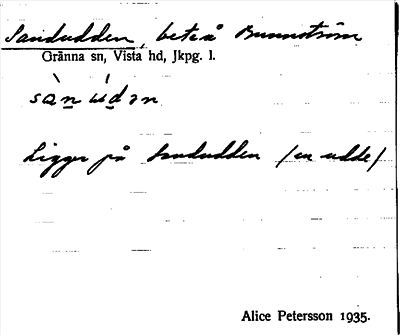 Sandudden, bete å Brunnström
Gränna sn, Vista hd, Jkpg. l.
sàn úd ən
Ligger på Sandudden /en udde/
Alice Petersson 1935.